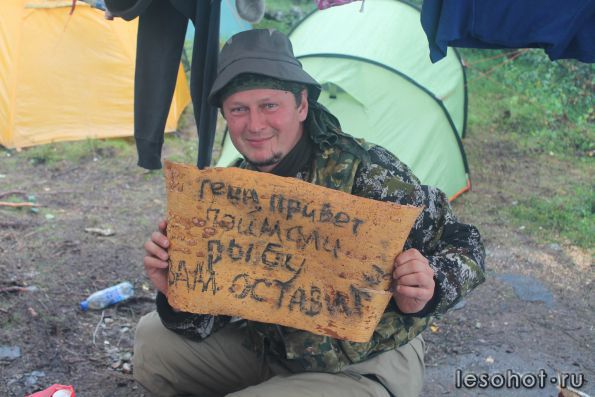 гена привет
поймали
рыбу
вам оставил
lesohot.ru